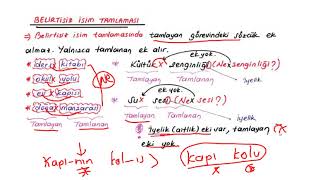 BELİRTİSİZ İSİM TAMLAMASI
⇒ Belirtisiz isim tamlamasında tamlayan görevindeki sözcük ek
almaz. Yalnızca tamlanan ek alır.
* ders kitabı
* okul yolu
* ev kapısı
* doğa manzarası
Tamlayan Tamlanan
Ne
ek yok.
Kültür x zenginliği (Ne x zenginliği?)
Tamlayan Tamlanan İyelik
ek yok
* Su x sesi (Ne x sesi?)
Tamlayan Tamlanan İyelik
İyelik (aitlik) eki var, tamlayan
eki yok.
Kapı-nın kol-u
kapı kolu